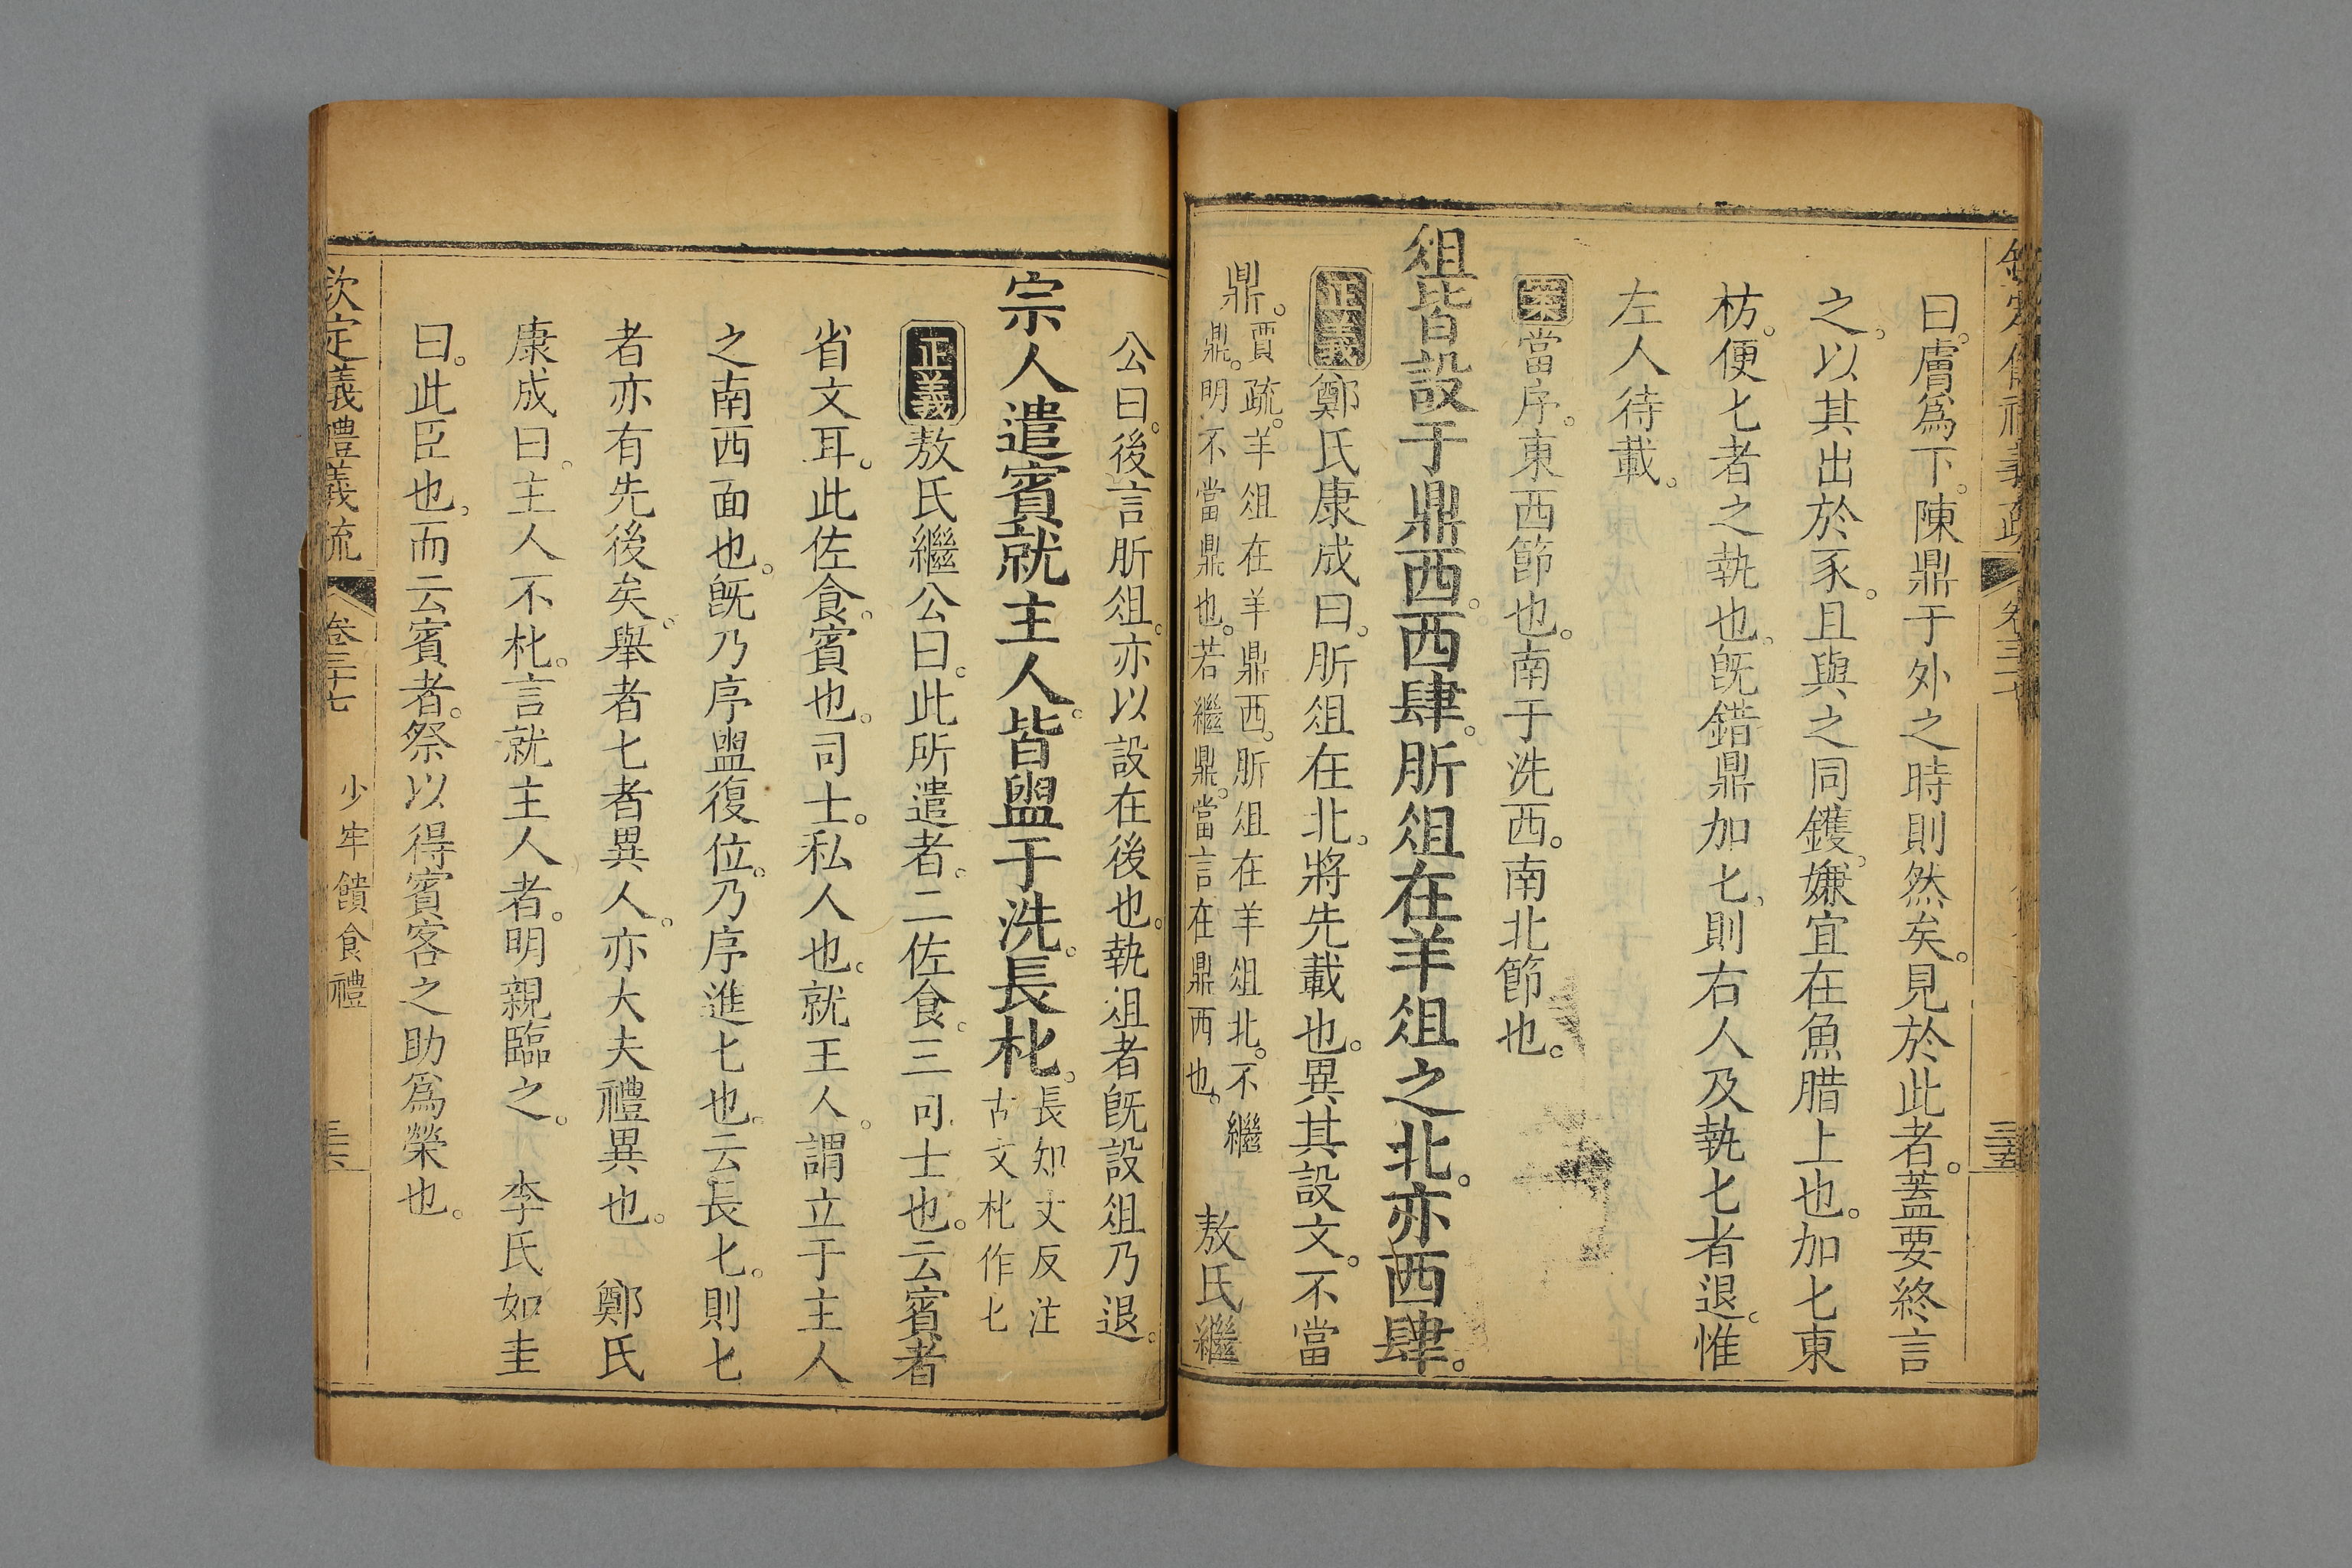 曰。膚爲下。陳鼎于外之時則然矣。見於此者。蓋要終言
之。以其出於豕。且與之同鑊。嫌宜在魚腊上也。加匕東
枋。便匕者之執也。旣錯鼎加匕。則右人及執匕者退。惟
左人待載。
案當序。東西節也。南于洗西。南北節也。
俎皆設于鼎西。西肆。肵俎在羊俎之北。亦西肆。
正義鄭氏康成曰。肵俎在北。將先載也。異其設文。不當
鼎。賈疏。羊俎在羊鼎西。肵俎在羊俎北。不繼
鼎。明不當鼎也。若繼鼎。當言在鼎西也。
敖氏繼
公曰。後言肵俎。亦以設在後也。執俎者旣設俎乃退。
宗人遣賓就主人。皆盥于洗。長朼。長知丈反注
古文朼作匕
正義敖氏繼公曰。此所遣者。二佐食。三司士也。云賓者
省文耳。此佐食。賓也。司士。私人也。就主人。謂立于主人
之南西面也。旣乃序盥復位。乃序進匕也。云長匕。則匕
者亦有先後矣。舉者匕者異人。亦大夫禮異也。 鄭氏
康成曰。主人不朼。言就主人者。明親臨之。 李氏如圭
曰。此臣也。而云賓者。祭以得賓客之助爲榮也。
欽定義禮義疏 卷三十七 少牢饋食禮 三六